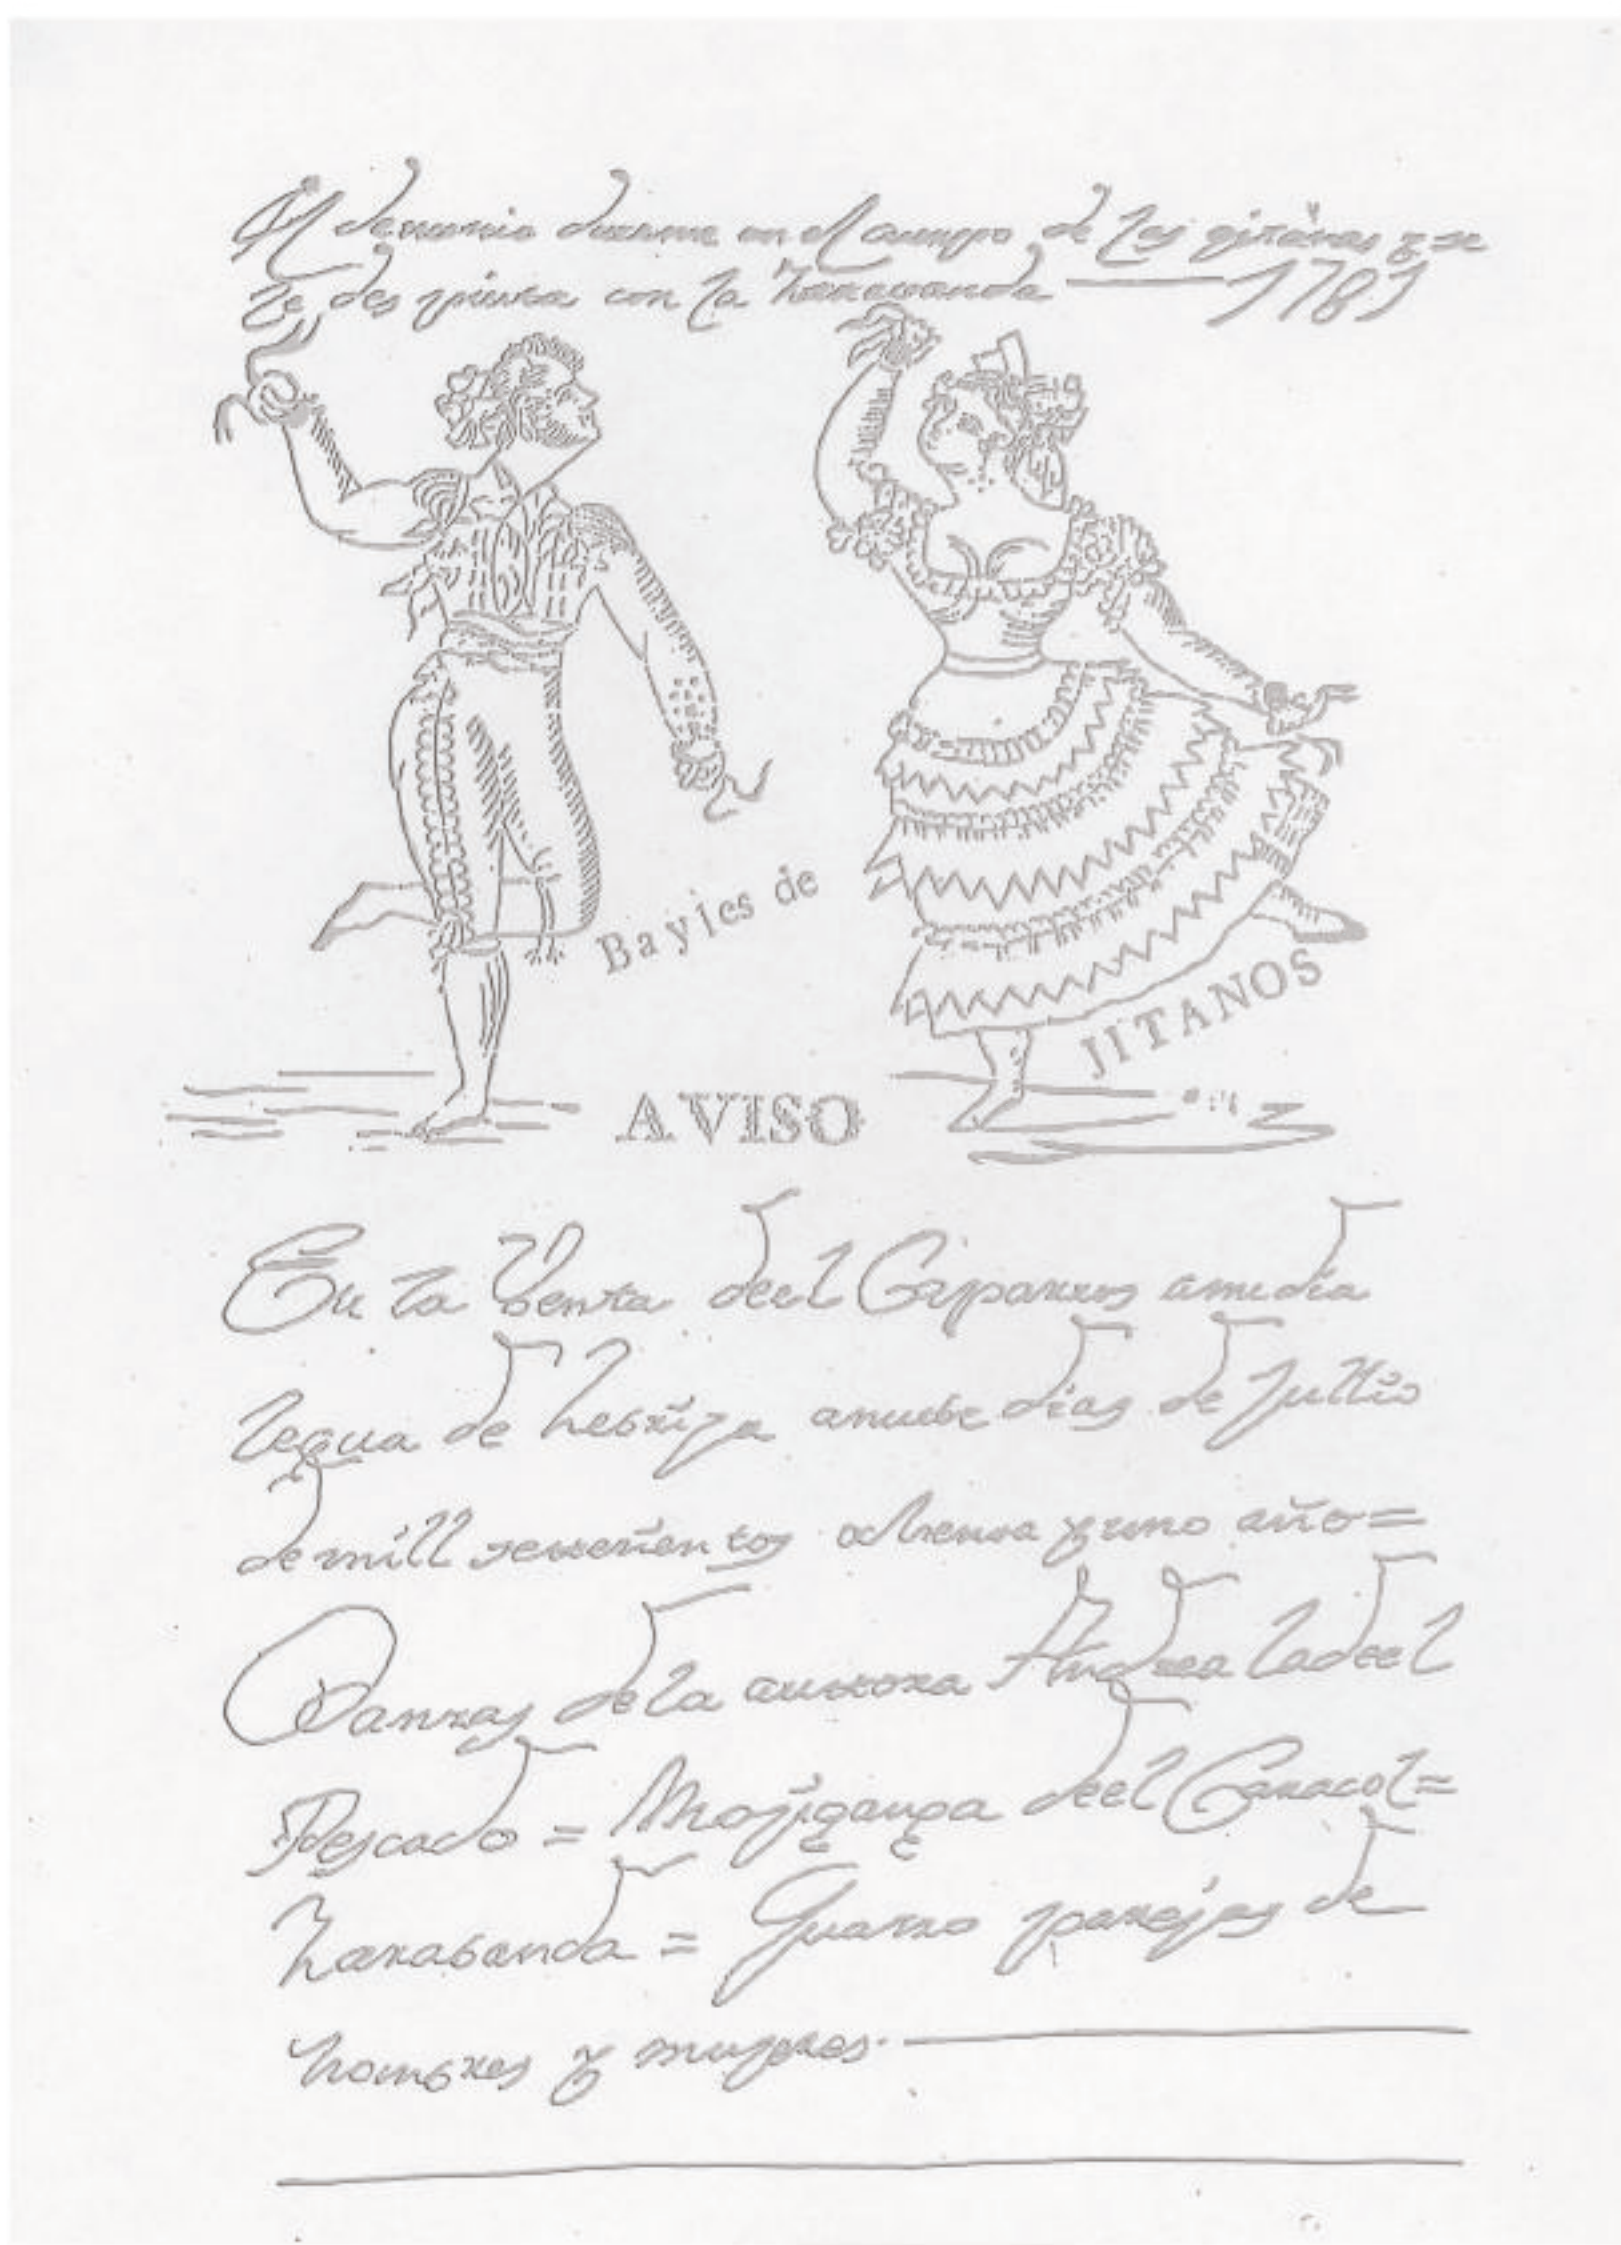 El demonio duerme en el cuerpo de las gitanas y se
le des pierta con la Zarabanda — 1781
Bayies de
JITANOS
AVISO
En la Venta deel Caparros amedia
legua de Lebrija anuebe dias de Jullio
de mill setezientos ochenta y uno año=
Danzas de la auttora Andrea la deel
Pescado = Mojiganga deel Caracol=
Zarabanda = Quatro parejas de
hombres y mugeres.